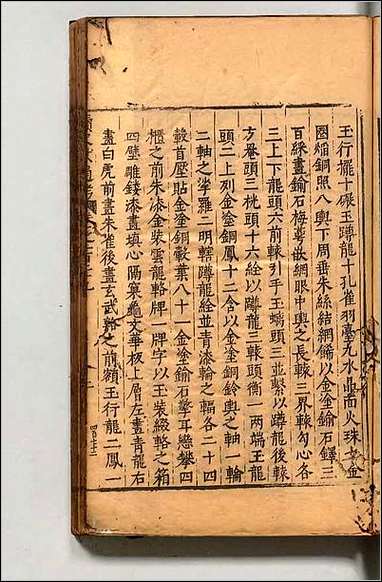 玉行擺十碾玉蹲龍十孔雀羽臺九水晶面火珠金
圈褊銅照八輿下周垂朱絲結網餙以金塗鍮石鐸三
百綵畫鍮石梅萼嵌網眼中輿之長轅三界轅勾心各
三上下龍頭六前轅引手玉螭頭三並繫以蹲龍後轅
方罨頭三桄頭十六絟以蹲龍三轅頭衡一兩端玉龍
頭二上列金塗銅鳳十二含以金塗銅鈴輿之軸一輪
二軸之挲羅二明轄蹲龍絟並青漆輪之輻各二十四
轂首壓貼金塗銅轂葉八十一金塗鍮石擎耳戀攀四
櫃之前朱漆金裝雲龍輅牌一牌字以玉裝綴輅之箱
四壁雕鏤漆畫填心隔窠龜文華板上層左畫青龍右
畫白虎前畫朱雀後畫玄武輅之前額玉行龍二鳳一